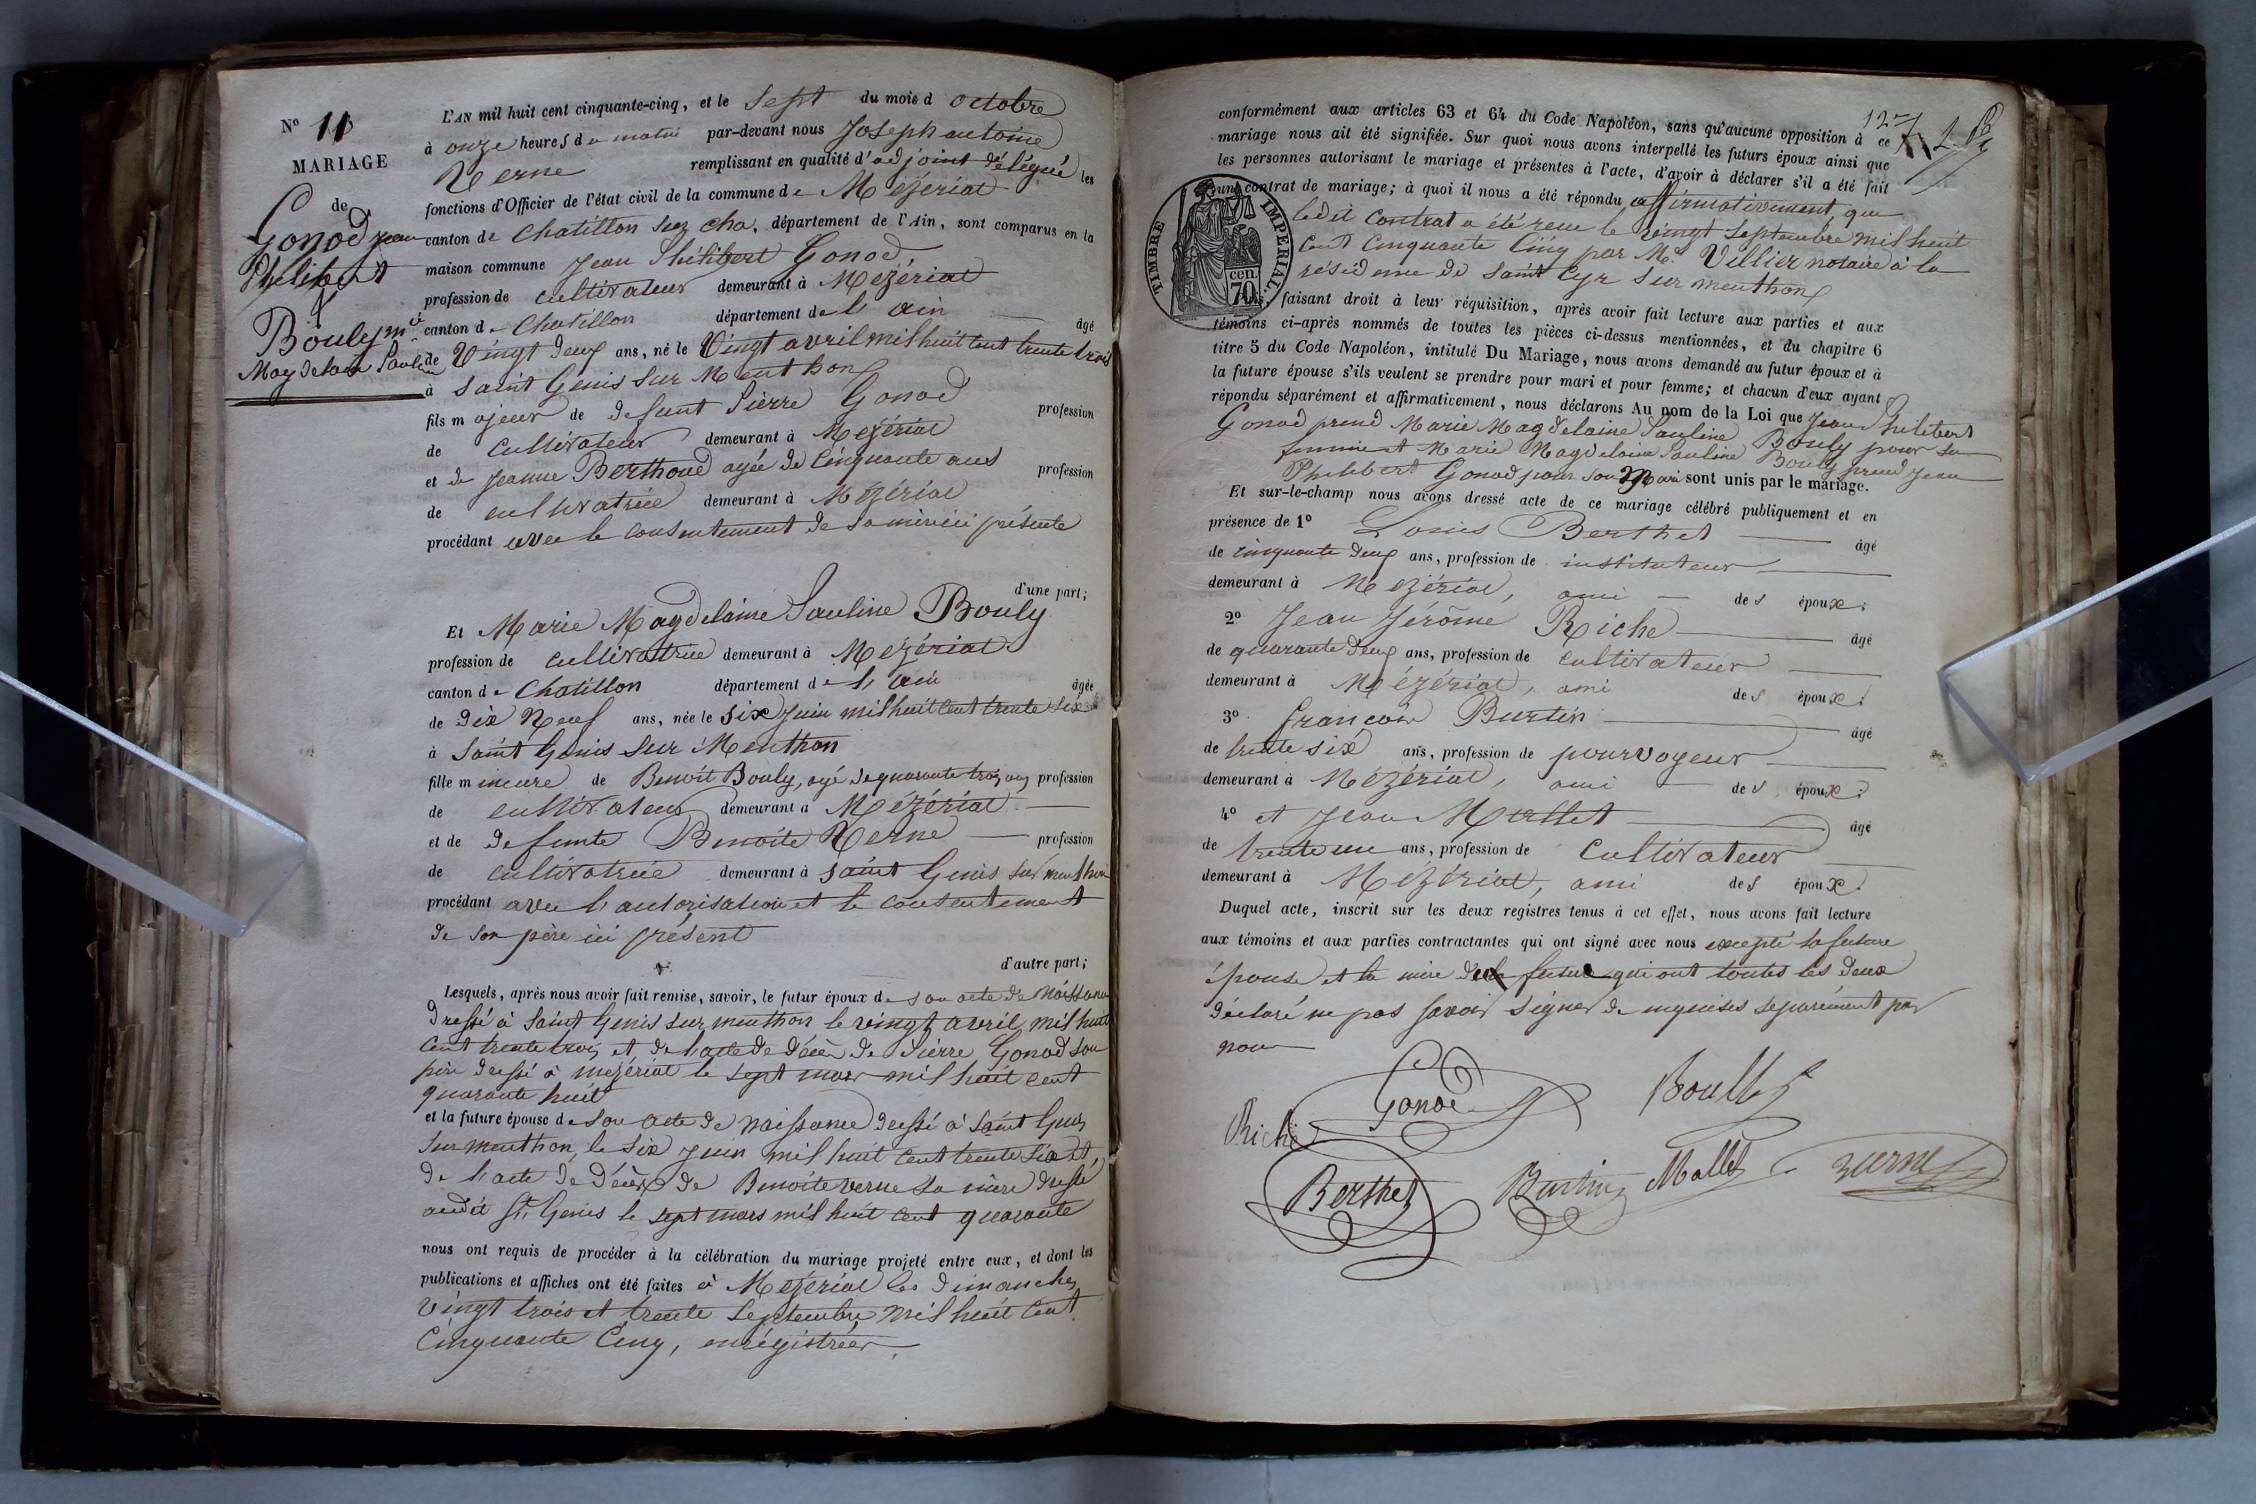 N° 11
MARIAGE
de
Gonod Jean
Philibert
&
Bouly Mie
Magdelaine Pauline
L'AN mil huit cent cinquante-cinq, et le sept du mois d octobre
à onze heures du matin par-devant nous Joseph antoine
Verne remplissant en qualité d'adjoint délégué les
fonctions d'Officier de l'état civil de la commune de Mézériat
canton de Chatillon sur Cha. département de l'Ain, sont comparus en la
maison commune Jean Philibert Gonod
profession de cultivateur demeurant à Mézériat
canton de Chatillon département de l'ain âgé
de vingt deux ans, né le vingt avril mil huit cent trente trois
à Saint Genis sur Menthon
fils majeur de defunt Pierre Gonod profession
de cultivateur demeurant à Mézériat
et de Jeanne Berthoud agée de cinquante ans profession
de cultivatrice demeurant à Mézériat
procédant avec le consentement de sa mère ici présente
d'une part;
Et Marie Magdelaine Pauline Bouly
profession de cultivatrice demeurant à Mézériat
canton de Chatillon département de l'ain âgée
de dix neuf ans, née le six juin mil huit cent trente six
à Saint Genis sur Menthon
fille mineure de Benoit Bouly, agé de quarante trois ans profession
de cultivateur demeurant à Mézériat
et de defunte Benoite Verne profession
de cultivatrice demeurant à Saint Genis sur menthon
procédant avec l'autorisation et le consentement
de son père ici présent
d'autre part;
Lesquels, après nous avoir fait remise, savoir, le futur époux de son acte de naissance
dressé à Saint Genis sur menthon le vingt avril mil huit
cent trente trois et de l'acte de décès de Pierre Gonod son
père dressé à mezériat le sept mars mil huit cent
quarante huit
et la future épouse de son acte de naissance dressé à Saint Genis
sur menthon, le six juin mil huit cent trente six et,
de l'acte de décès de Benoite verne sa mère dressé
audit St Genis le sept mars mil huit cent quarante
nous ont requis de procéder à la célébration du mariage projeté entre eux, et dont les
publications et affiches ont été faites à Mézériat les dimanches
vingt trois et trente septembre mil huit cent
cinquante cinq, enrégistrées
127
conformément aux articles 63 et 64 du Code Napoléon, sans qu'aucune opposition à ce
mariage nous ait été signifiée. Sur quoi nous avons interpellé les futurs époux ainsi que
les personnes autorisant le mariage et présentes à l'acte, d'avoir à déclarer s'il a été fait
un contrat de mariage; à quoi il nous a été répondu affirmativement, que
ledit contrat a été reçu le vingt septembre mil huit
cent cinquante cinq par Me Villier notaire à la
résidence de Saint Cyr sur menthon
TIMBRE IMPERIAL.
70 cen.
faisant droit à leur réquisition, après avoir fait lecture aux parties et aux
témoins ci-après nommés de toutes les pièces ci-dessus mentionnées, et du chapitre 6
titre 5 du Code Napoléon, intitulé Du Mariage, nous avons demandé au futur époux et à
la future épouse s'ils veulent se prendre pour mari et pour femme; et chacun d'eux ayant
répondu séparément et affirmativement, nous déclarons Au nom de la Loi que Jean Philibert
Gonod prend Marie Magdelaine Pauline Bouly pour sa
femme et Marie Magdelaine Pauline Bouly prend Jean
Philibert Gonod pour son Mari sont unis par le mariage.
Et sur-le-champ nous avons dressé acte de ce mariage célébré publiquement et en
présence de 1° Louis Berthet âgé
de cinquante deux ans, profession de instituteur
demeurant à Mézériat, ami des époux;
2° Jean Jérôme Riche âgé
de quarante deux ans, profession de cultivateur
demeurant à Mézériat, ami des époux;
3° françois Burtin âgé
de trente six ans, profession de pourvoyeur
demeurant à Mézériat, ami des époux;
4° et Jean Mallet âgé
de trente un ans, profession de cultivateur
demeurant à Mézériat, ami des époux.
Duquel acte, inscrit sur les deux registres tenus à cet effet, nous avons fait lecture
aux témoins et aux parties contractantes qui ont signé avec nous excepté la future
épouse et la mère du futur qui ont toutes les deux
déclaré ne pas savoir signer de ce requises séparément par
nous
Gonod Boully
Riche
Berthet Burtin Mallet verne